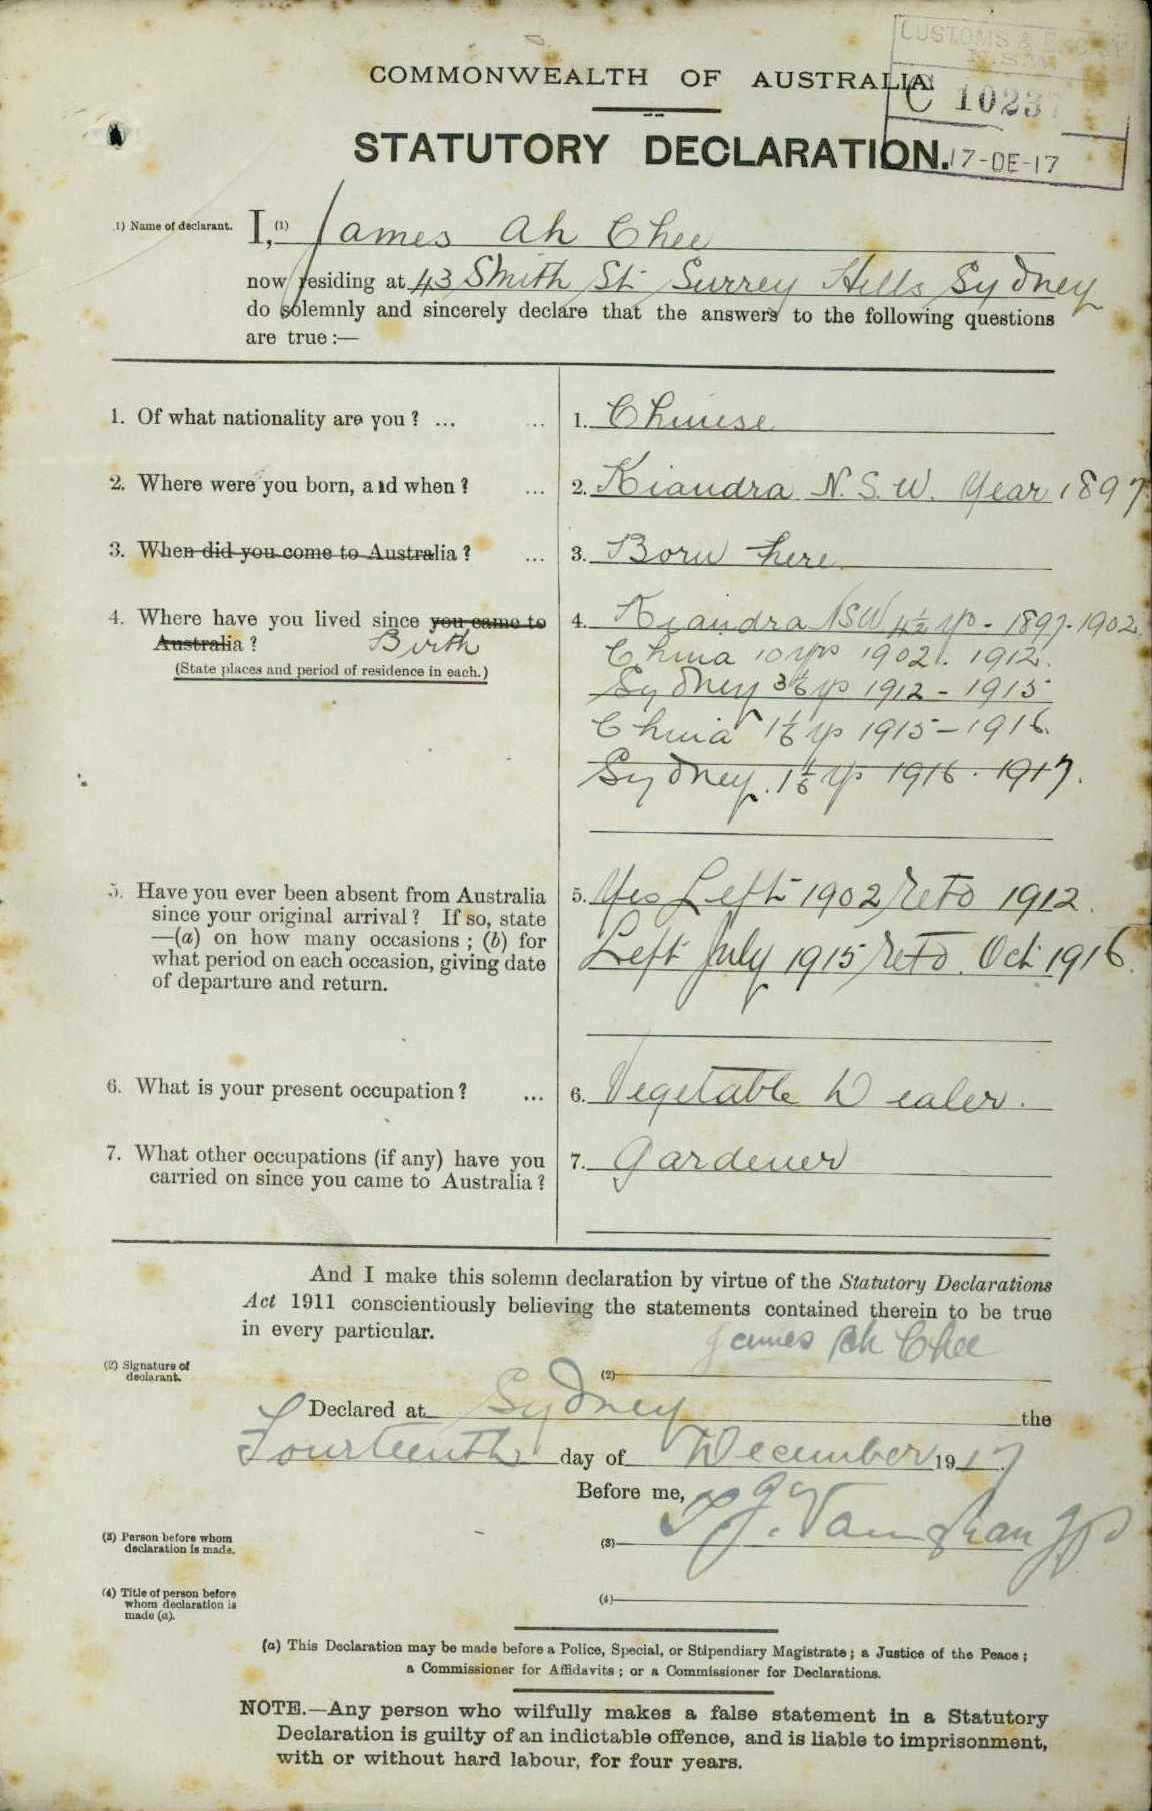 CUSTOMS & EXCISE
N.S.W.
COMMONWEALTH OF AUSTRALIA.
C 10237
STATUTORY DECLARATION.
17-DE-17
1) Name of declarant. I, (1) James Ah Chee
now residing at 43 Smith St. Surrey Hills Sydney
do solemnly and sincerely declare that the answers to the following questions
are true:—
1. Of what nationality are you? ... ... 1. Chinese
2. Where were you born, and when? ... 2. Kiandra N.S.W. Year 1897
3. When did you come to Australia? ... 3. Born here.
4. Where have you lived since you came to 4. Kiandra NSW 4½ yrs - 1897-1902.
Australia? Birth
(State places and period of residence in each.)
China 10 yrs 1902. 1912.
Sydney 3 yrs 1912 - 1915
China 1 1/6 yrs 1915 - 1916.
Sydney. 1 1/6 yrs 1916. 1917.
5. Have you ever been absent from Australia 5. Yes Left 1902 retd 1912.
since your original arrival? If so, state
—(a) on how many occasions; (b) for Left July 1915 retd. Oct 1916.
what period on each occasion, giving date
of departure and return.
6. What is your present occupation? ... 6. Vegetable Dealer.
7. What other occupations (if any) have you 7. Gardener
carried on since you came to Australia?
And I make this solemn declaration by virtue of the Statutory Declarations
Act 1911 conscientiously believing the statements contained therein to be true
in every particular.
James Ah Chee
(2) Signature of
declarant. (2)
Declared at Sydney the
Fourteenth day of December 1917.
Before me,
(3) Person before whom
declaration is made. (3) J.J. Vaughan JP
(4) Title of person before
whom declaration is
made (a). (4)
(a) This Declaration may be made before a Police, Special, or Stipendiary Magistrate; a Justice of the Peace;
a Commissioner for Affidavits; or a Commissioner for Declarations.
NOTE.—Any person who wilfully makes a false statement in a Statutory
Declaration is guilty of an indictable offence, and is liable to imprisonment,
with or without hard labour, for four years.